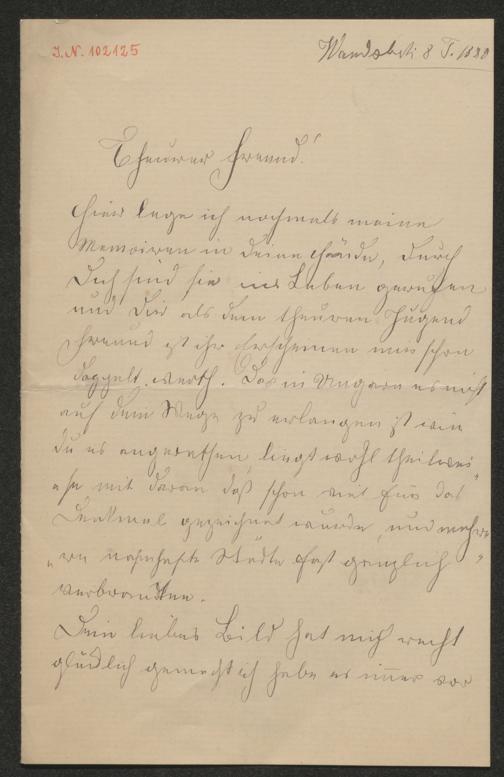 I.N. 102125
Wandsbek 8 T. 1888
Theurer Freund!
Hier lege ich nochmals meine
Memoiren in deine Hände, durch
Dich sind sie ins Leben gerufen
und Dir als dem theuren Jugend
Freund ist ihr Erscheinen nun schon
doppelt werth. Daß in Ungarn es nicht
auf dem Wege zu erlangen ist wie
du es angerathen, liegt wohl theilwei
"se mit daran daß schon viel für das
Denkmal gezeichnet wurde, und mehre
"re nahmhafte Städte fast gänzlich
verbrannten.
Dein liebes Bild hat mich recht
glücklich gemacht ich habe es immer vor